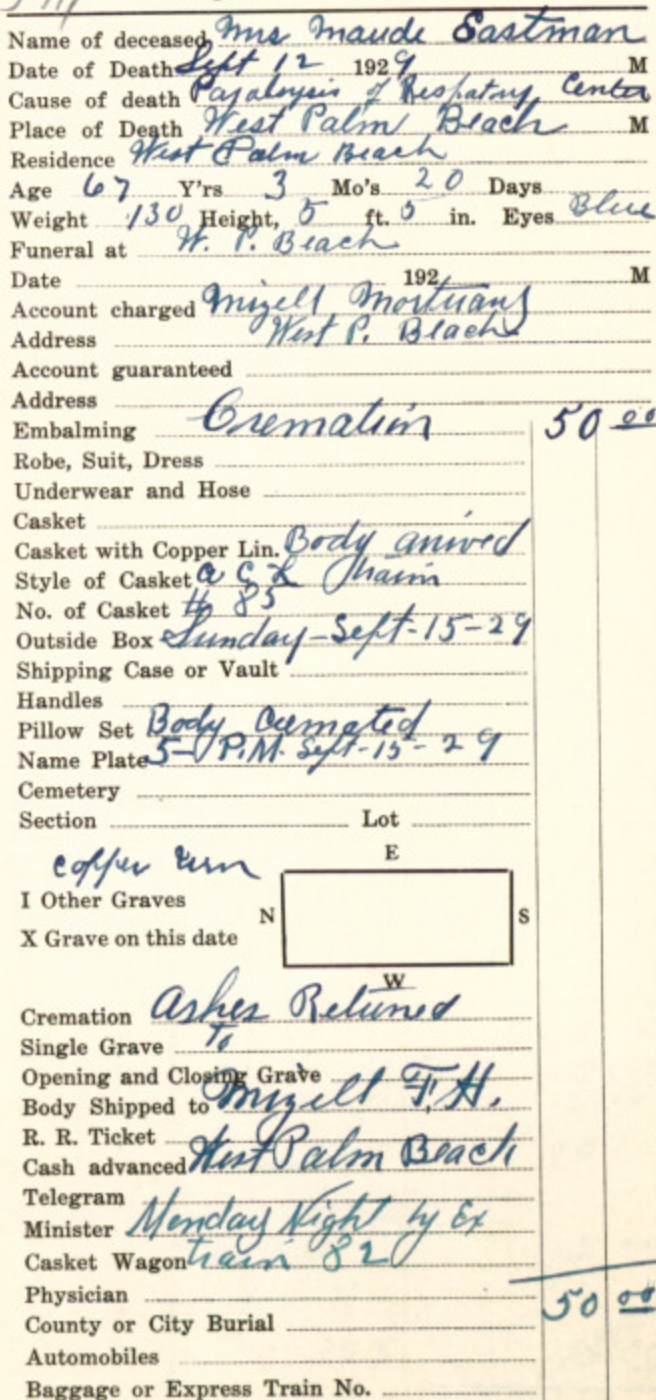 Name of deceased Mrs Maude Eastman
Date of Death Sept 12 1929 M
Cause of death Paralysis of Respatory Center
Place of Death West Palm Beach M
Residence West Palm Beach
Age 67 Y'rs 3 Mo's 20 Days
Weight 130 Height, 5 ft. 5 in. Eyes Blue
Funeral at W. P. Beach
Date 192 M
Account charged Mizell Mortuary
Address West P. Beach
Account guaranteed
Address
Embalming Cremation 50 00
Robe, Suit, Dress
Underwear and Hose
Casket
Casket with Copper Lin. Body arived
Style of Casket A C L Train
No. of Casket # 85
Outside Box Sunday-Sept-15-29
Shipping Case or Vault
Handles
Pillow Set Body Cremated
Name Plate 5- P.M. Sept-15-29
Cemetery
Section Lot
E
Copper Urn
I Other Graves
N S
X Grave on this date
W
Cremation Ashes Returned
Single Grave To
Opening and Closing Grave
Body Shipped to Mizell F. H.
R. R. Ticket
Cash advanced West Palm Beach
Telegram
Minister Monday Night by Ex
Casket Wagon train 82
Physician 50 00
County or City Burial
Automobiles
Baggage or Express Train No.